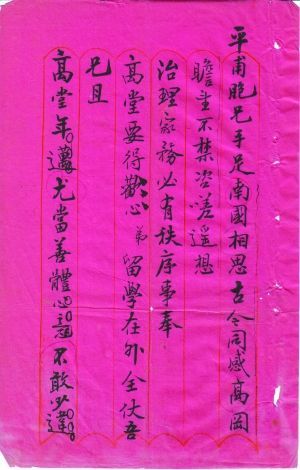 平甫胞兄手足南國相思古今同感高岡
瞻望不禁咨嗟遥想
治理家務必有秩序事奉
高堂要得歡心弟留學在外全仗吾
兄且
高堂年邁尤當善體心意不敢少違